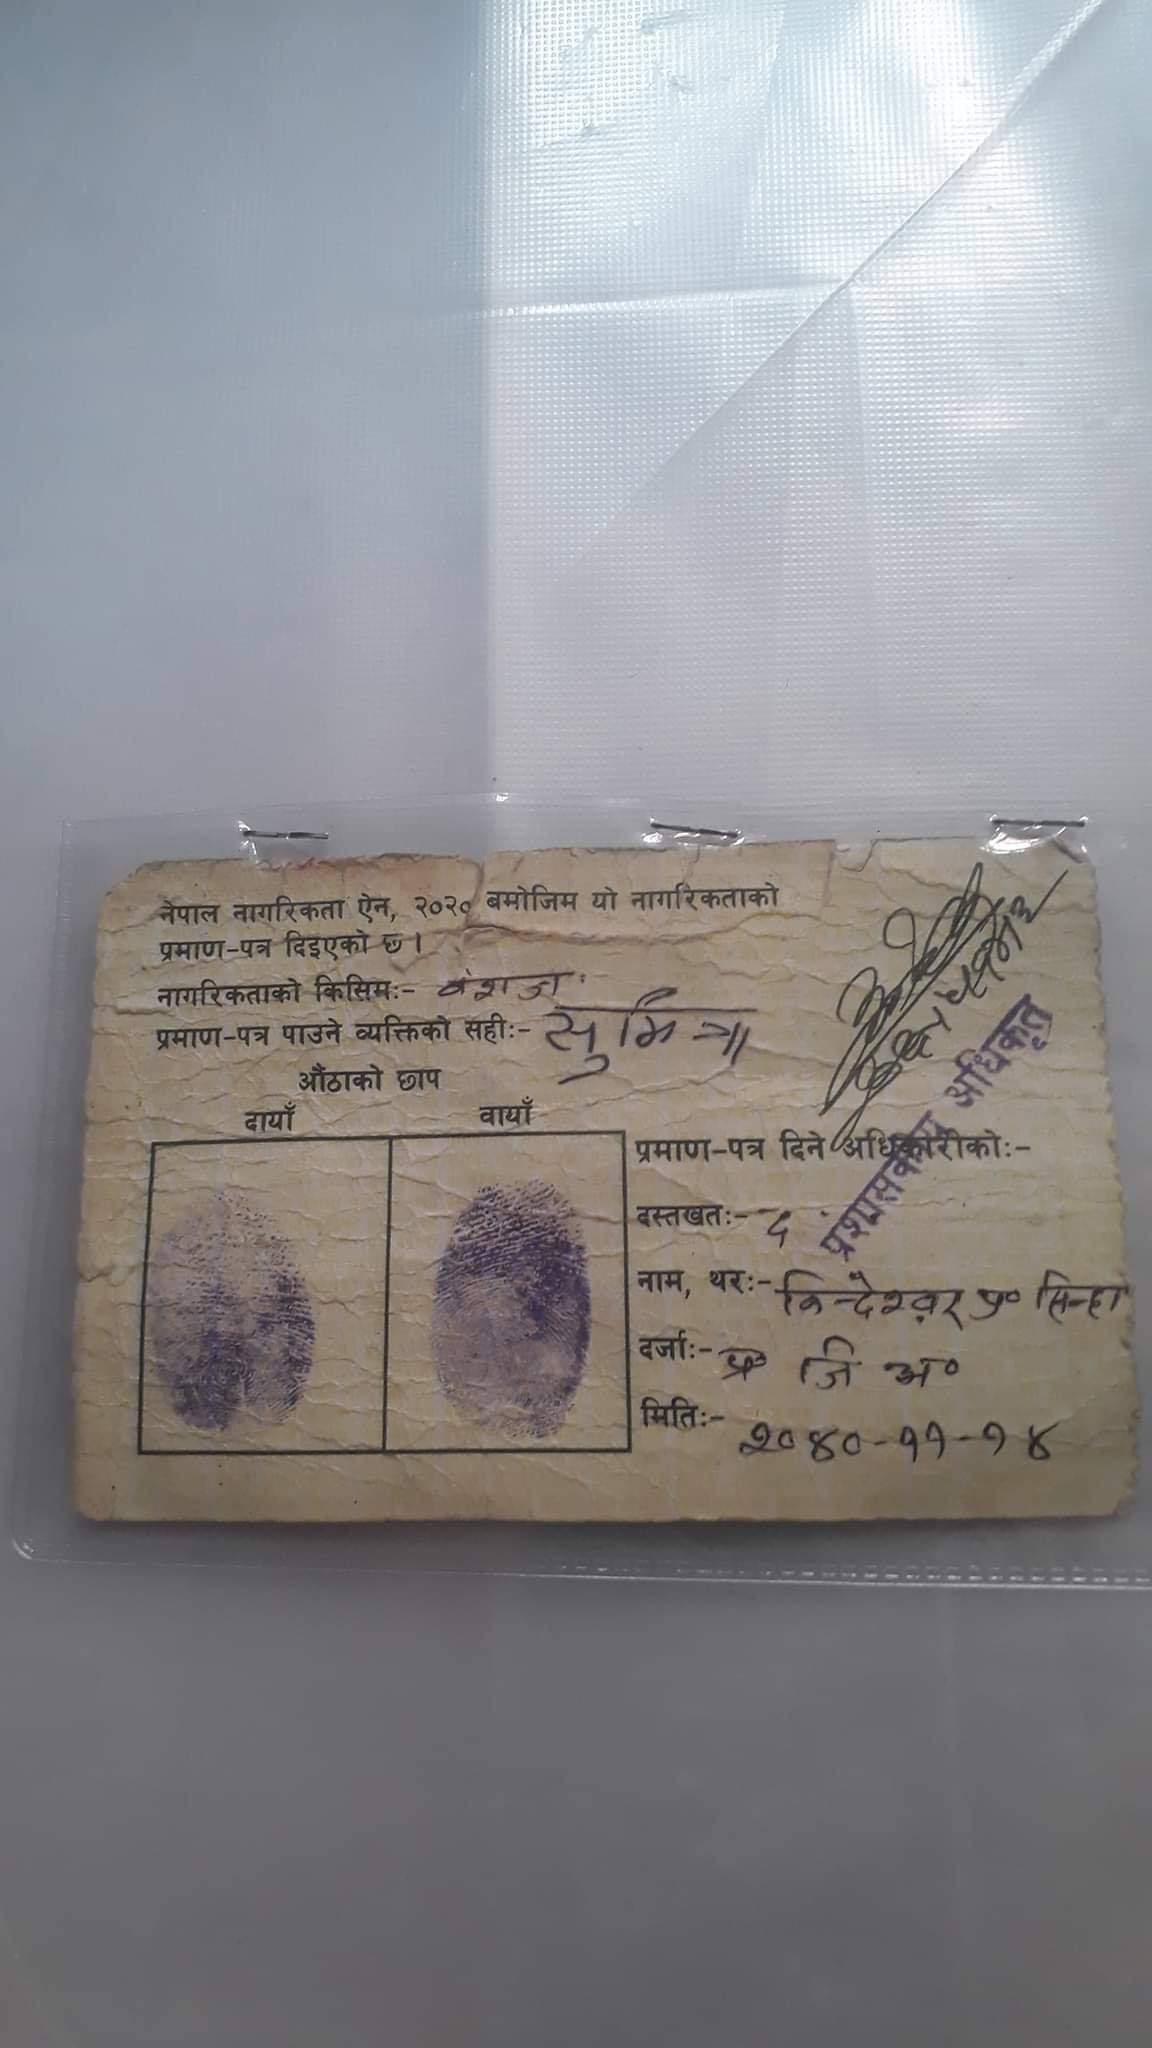 नेपाल नागरिकता ऐन, २०२० बमोजिम यो नागरिकताको
प्रमाण-पत्र दिइएको छ ।
नागरिकताको किसिमः- वंशज
प्रमाण-पत्र पाउने व्यक्तिको सहीः- सुमित्रा
औंठाको छाप
दायाँ वायाँ
प्रशासकीय अधिकृत
प्रमाण-पत्र दिने अधिकारीकोः-
दस्तखतः- द
नाम, थरः- प्र० सिन्हा
दर्जाः- प्र जि अ०
मितिः- २०४०-११-१४